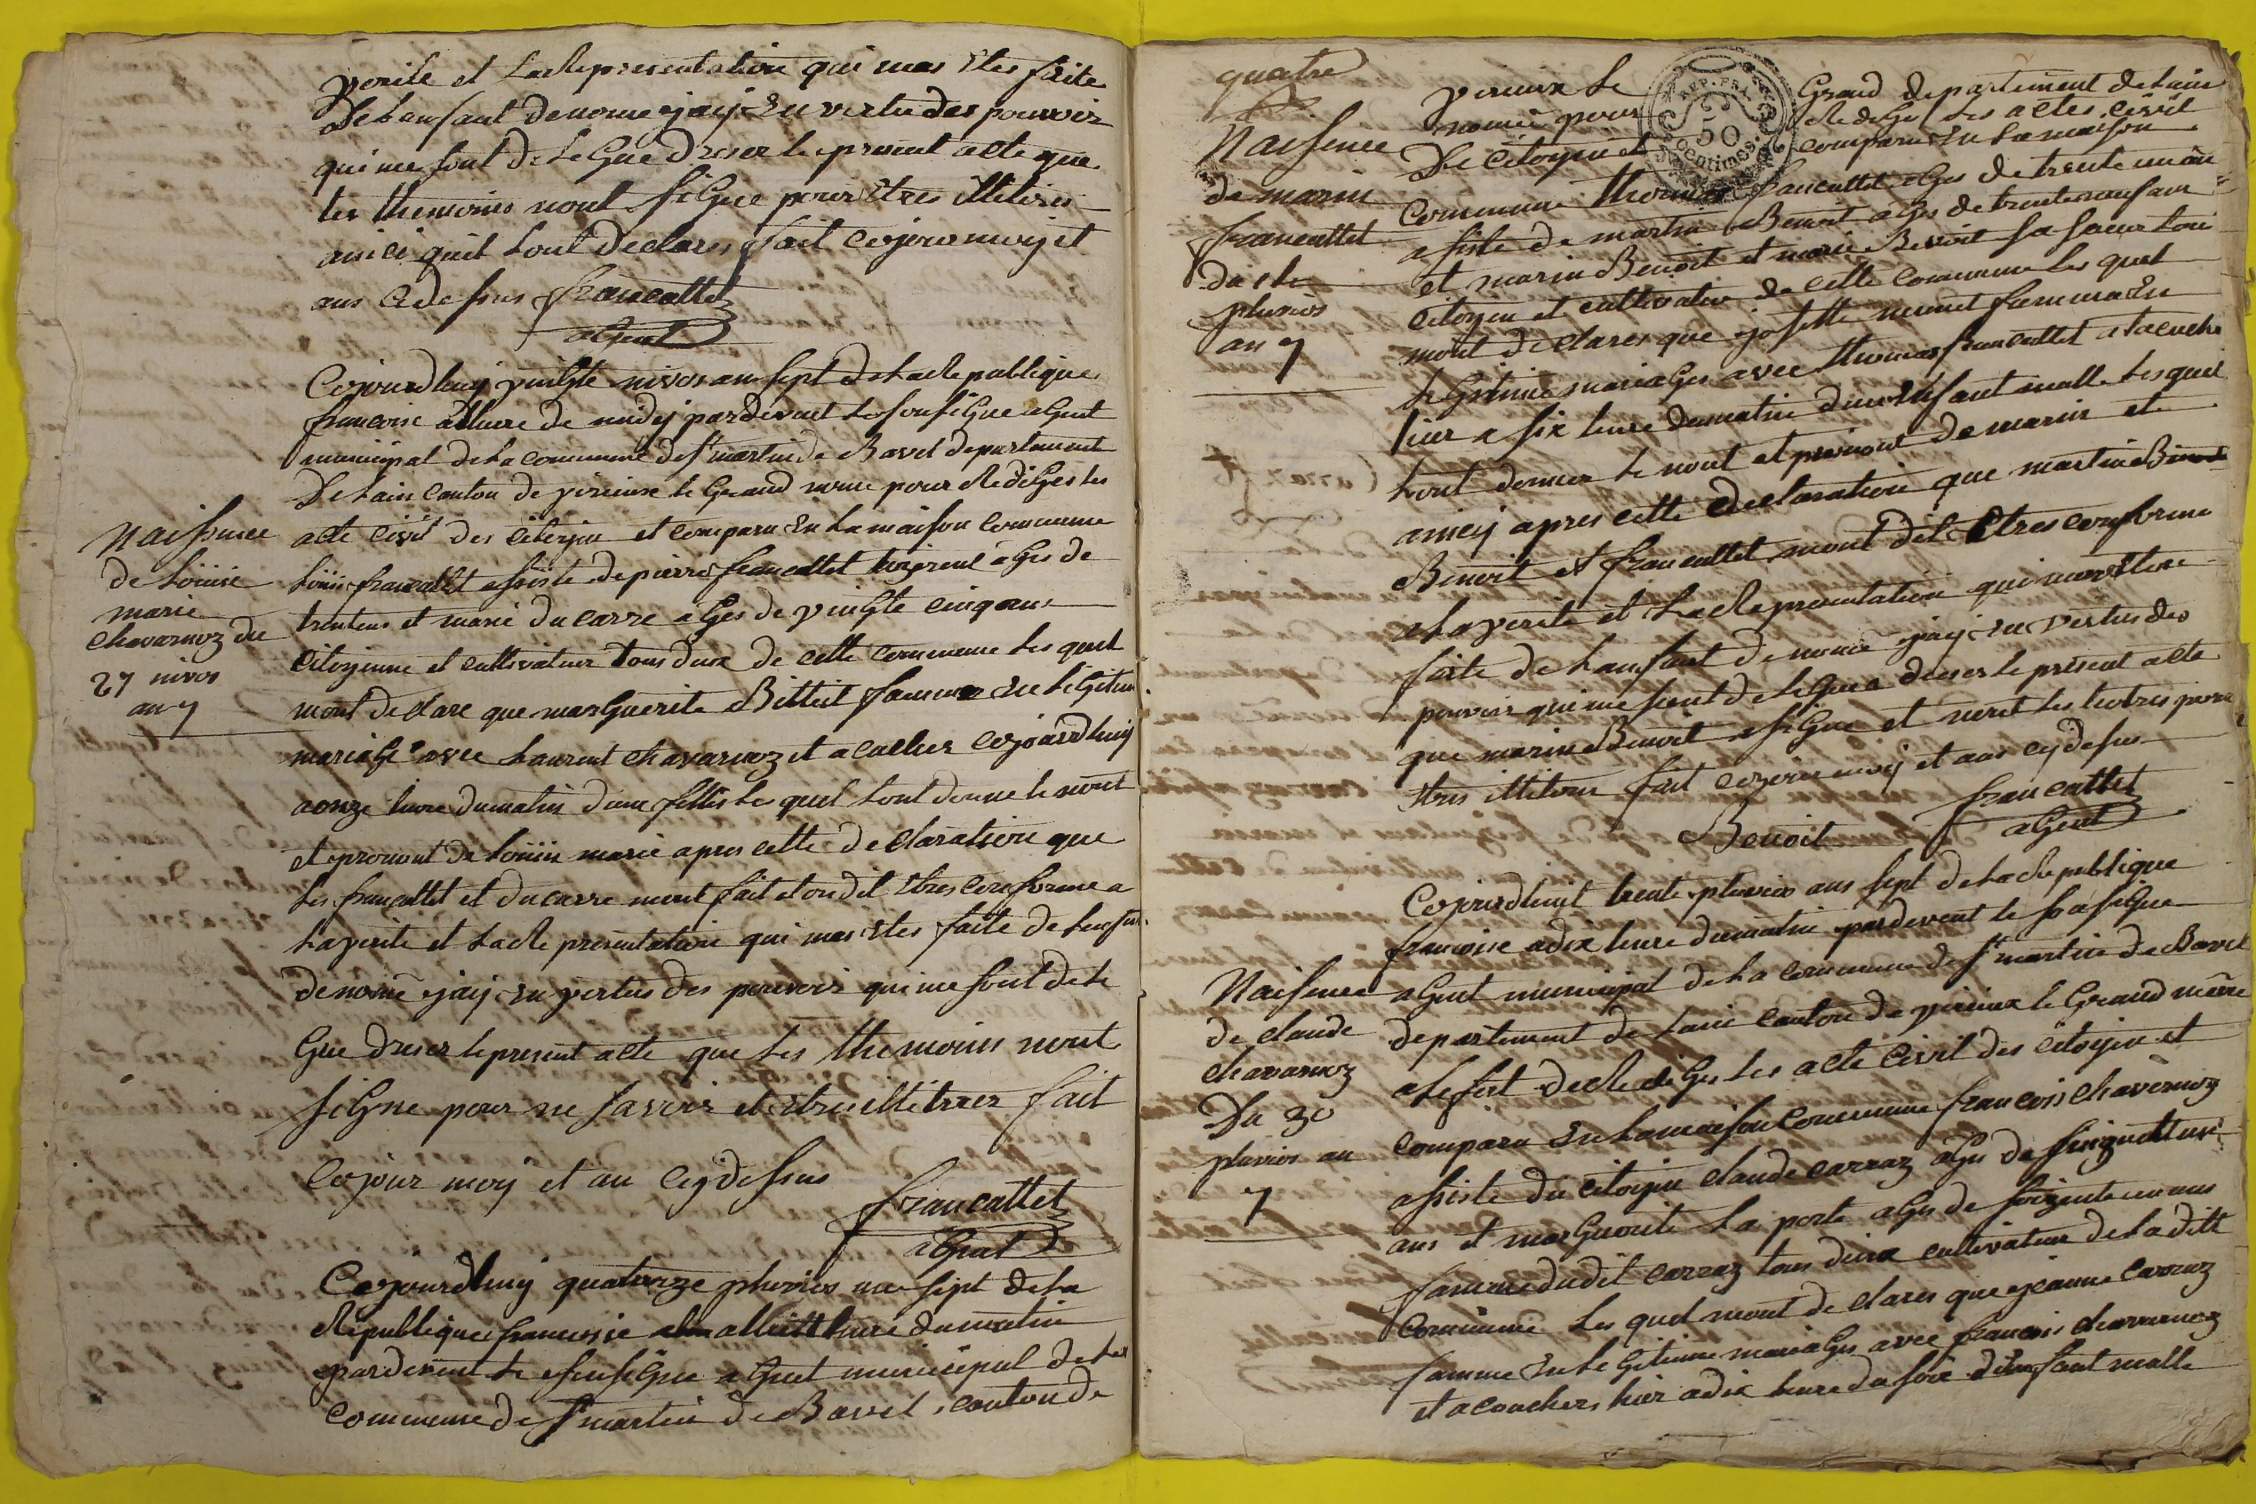 verite et la Representation qui mas Etes faite
De Lenfant denome jaiy En vertu des pouvoir
qui me sont deleGue Dreser le present acte que
les themoins nont siGne pour Etres illitires
ainsi quil lont Declares fait cejour moiy et
ans Cidesus francattet
aGent
Cejourdhuy vinGte nivos an sept de La Republique
francoise a lhure de midy pardevant le sousiGne aGent
municipal de La commune de St martin de Bavel departement
De Lain Canton de virieux le Grand nome pour RediGes les
acte Civil des Citoyin et comparu En La maison commune
Louis francattet assiste de pierre francattet aGes de
trentens et marie du carre aGes de vinGte cinq ans
Citoyenne et cultivateur tous deux de cette commune les quel
mont declare que marGuerite Billiet famme En leGitime
mariaGe avec Laurent Chavarnoz et acalher cejourdhuy
a onze hure du matin dune fillie les quel lont donne le nont
et prenont de Louise marie apres cette declaration que
les francattet et ducarre mont fait et ondit Etres conforme a
La verite et La Representation qui mas Etes faite de Lenfant
denome jaiy En vertus des pouvoir qui me sont dele
Gue dreser le present acte que les themoins nont
siGne pour ne savoir et Etre illitirer fait
Cejour moiy et an Ceydesus
francattet
aGent
Naissence
de Louise
marie
Chavarnoz du
27 nivos
an 7
Cejourdhuy quatorze pluvios an sept de La
Republique francoise a lhuitt hure du matin
pardevent le sousiGne aGent municipal de La
commune de St martin de Bavel, canton de
quatre
virieux le Grand departement de Lain
nome pour RediGe les actes civil
De Citoyin et comparu En La maison
Commune thomas francattet aGes de trente un an
assiste de martin Benoit aGes de trente neuf ans
et marin Benoit et marie Benoit sa saeur tous
Citoyin et cultivateur de cette commune les quel
mont declares que josette famme En
leGitime mariaGes avec thomas francattet a lacuche
hier a six heure du matin dun Enfant malle les quel
lont donner le nont et prenont de marin et
ainsy apres cette Declaration que martin
Benoit et francattet mont dit Etres conforme
a La verite et La Representation qui mas Etere
faite de Lanfant denome jaiy En vertus des
pouvoir qui me sont deleGue dreser le present acte
que marin Benoit a siGne et nont les hotres pour
Etres illitire fait cejour moiy et ans cydesus
Benoit francattet
aGent
Naissence
de marin
francattet
du
pluvios
an 7
Cejourdhuit trente pluvios ans sept de La Republique
francoise a dix heure du matin pardevent le sousiGne
aGent municipal de La commune de St martin de Bavel
departement de Lain canton de virieux le Grand nome
a leffet de RediGes les acte Civil des Citoyin et
comparu En La maison Commune francois Chavernoz
assiste du citoyin claude carraz aGes de sinquete un
ans et marGuerite La porte aGes de soizente un ans
famme dudit carraz tous deux cultivateur de Ladite
Commune les quel mont declares que jeanne carraz
famme En leGitime mariaGes avec francois chavarnoz
et a couchers hier a dix heure du soir dEnfant malle
Naissence
de claude
Chavarnoz
Du 30
pluvios an
7
REP. FRA.
50
centimes